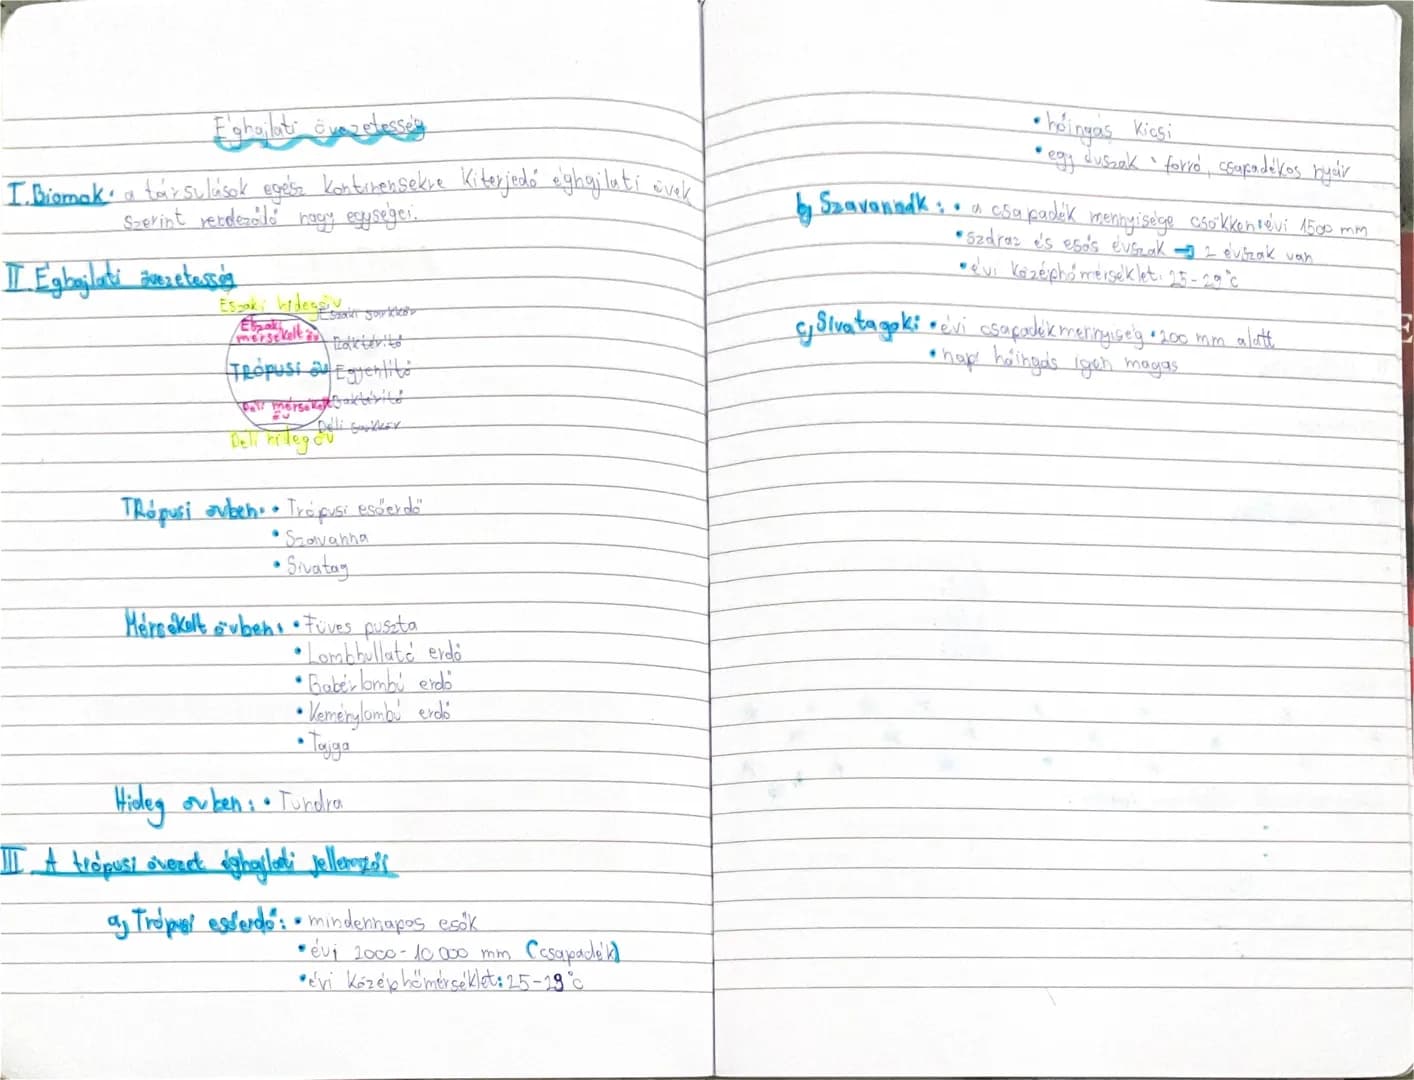 Éghajlati övezetesség
I. Biomok: a társulások egész kontinensekre kiterjedő éghajlati övek
szerint rendeződő nagy egységei.
II. Éghajlati övezetesség
Északi hideg öv
Északi sarkkör
Északi
mérsékelt öv
Ráktérítő
TRÓPUSI ÖV Egyenlítő
Déli mérsékelt Baktérítő
öv
Déli sarkkör
Déli hideg öv
TRópusi övben: • Trópusi esőerdő
• Szavanna
• Sivatag
Mérsékelt övben: • Füves puszta
• Lombhullató erdő
• Babérlombú erdő
• Keménylombú erdő
• Tajga
Hideg övben: • Tundra
III. A trópusi övezet éghajlati jellemzői
a, Trópusi esőerdő: • mindennapos esők
• évi 2000-10 000 mm (csapadék)
• évi középhőmérséklet: 25-29°C
• hőingás kicsi
• egy évszak: forró, csapadékos nyár
b, Szavannák: • a csapadék mennyisége csökken: évi 1500 mm
• száraz és esős évszak → 2 évszak van
• évi középhőmérséklet: 25-29°C
c, Sivatagok: • évi csapadékmennyiség • 200 mm alatt
• napi hőingás igen magas